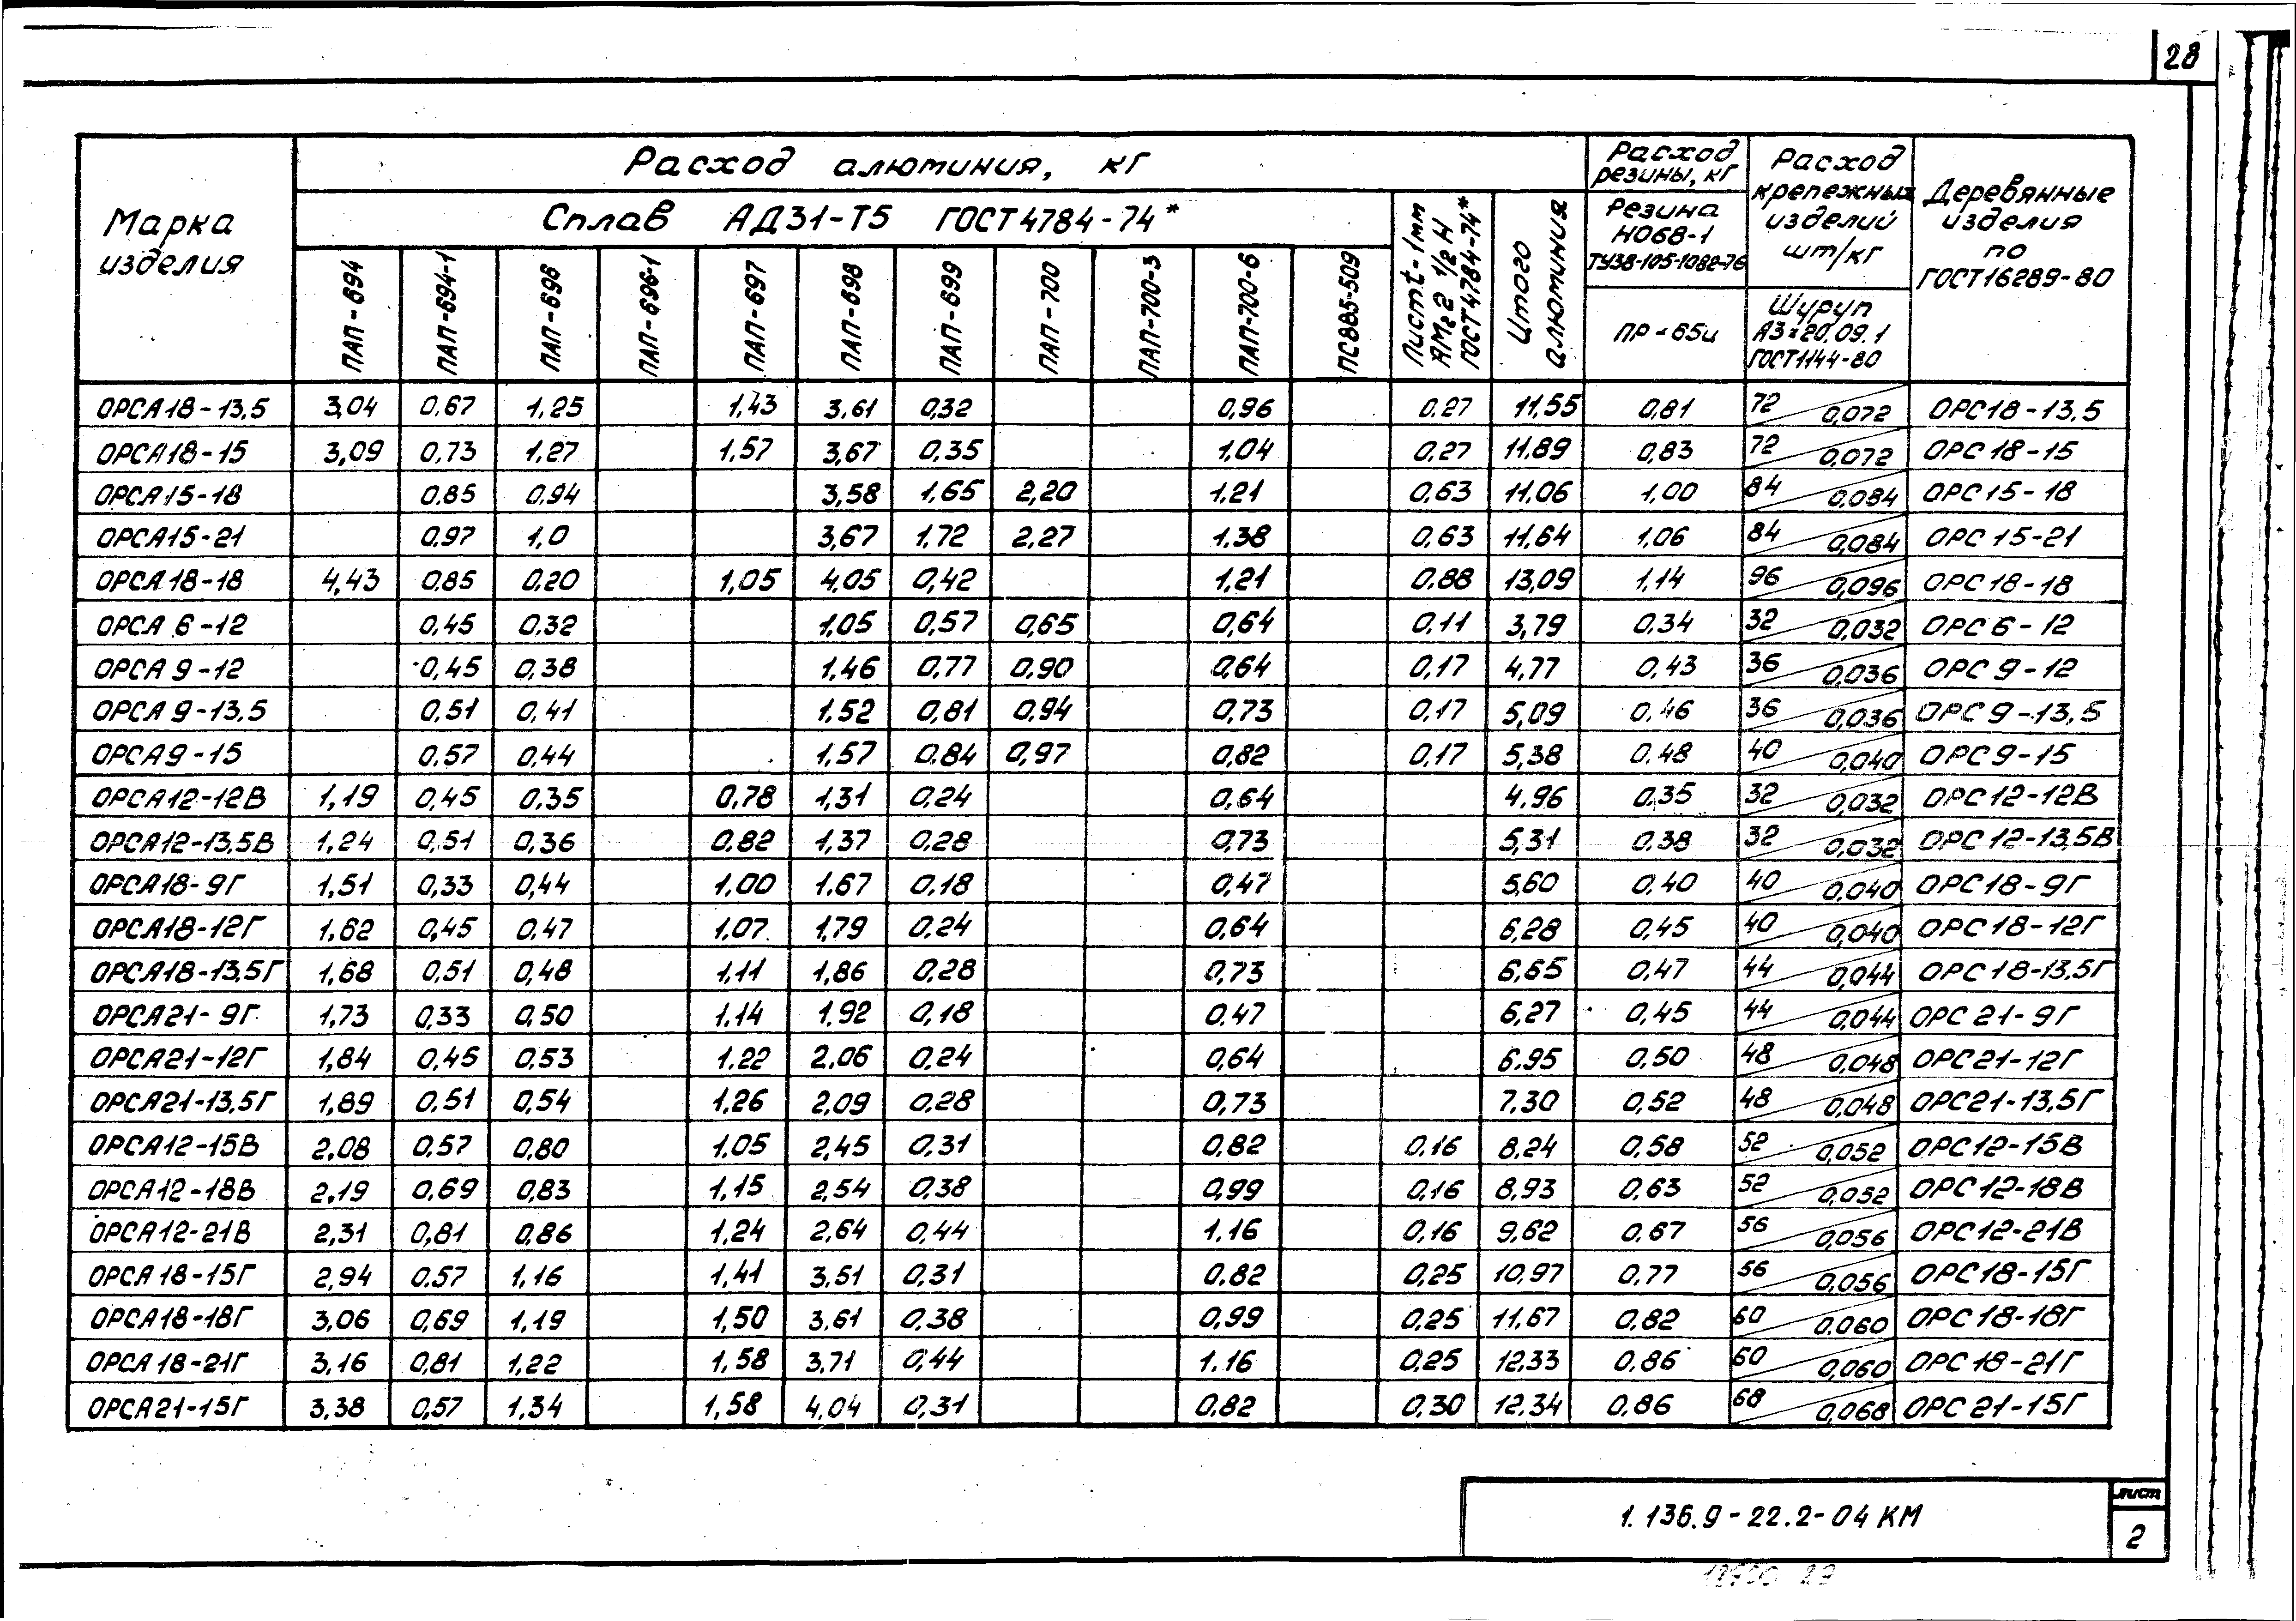 28
Марка изделия
Расход алюминия, кг
Сплав АД31-Т5 ГОСТ4784-74*
ПАП-694 ПАП-694-1 ПАП-696 ПАП-696-1 ПАП-697 ПАП-698 ПАП-699 ПАП-700 ПАП-700-3 ПАП-700-6 ПС885-509
Лист t-1мм АМг2 1/2Н ГОСТ4784-74*
Итого алюминия
Расход резины, кг
Резина НО68-1 ТУ38-105-1082-76
ПР-65и
Расход крепежных изделий шт/кг
Шуруп А3х20.09.1 ГОСТ1144-80
Деревянные изделия по ГОСТ16289-80
ОРСА18-13,5 3,04 0,67 1,25 1,43 3,61 0,32 0,96 0,27 11,55 0,81 72 0,072 ОРС18-13,5
ОРСА18-15 3,09 0,73 1,27 1,57 3,67 0,35 1,04 0,27 11,89 0,83 72 0,072 ОРС 18-15
ОРСА15-18 0,85 0,94 3,58 1,65 2,20 1,21 0,63 11,06 1,00 84 0,084 ОРС 15-18
ОРСА15-21 0,97 1,0 3,67 1,72 2,27 1,38 0,63 11,64 1,06 84 0,084 ОРС 15-21
ОРСА18-18 4,43 0,85 0,20 1,05 4,05 0,42 1,21 0,88 13,09 1,14 96 0,096 ОРС 18-18
ОРСА 6-12 0,45 0,32 1,05 0,57 0,65 0,64 0,11 3,79 0,34 32 0,032 ОРС 6-12
ОРСА 9-12 0,45 0,38 1,46 0,77 0,90 0,64 0,17 4,77 0,43 36 0,036 ОРС 9-12
ОРСА 9-13,5 0,51 0,41 1,52 0,81 0,94 0,73 0,17 5,09 0,46 36 0,036 ОРС 9-13,5
ОРСА9-15 0,57 0,44 1,57 0,84 0,97 0,82 0,17 5,38 0,48 40 0,040 ОРС 9-15
ОРСА12-12В 1,19 0,45 0,35 0,78 1,31 0,24 0,64 4,96 0,35 32 0,032 ОРС 12-12В
ОРСА12-13,5В 1,24 0,51 0,36 0,82 1,37 0,28 0,73 5,31 0,38 32 0,032 ОРС 12-13,5В
ОРСА18-9Г 1,51 0,33 0,44 1,00 1,67 0,18 0,47 5,60 0,40 40 0,040 ОРС 18-9Г
ОРСА18-12Г 1,62 0,45 0,47 1,07 1,79 0,24 0,64 6,28 0,45 40 0,040 ОРС 18-12Г
ОРСА18-13,5Г 1,68 0,51 0,48 1,11 1,86 0,28 0,73 6,65 0,47 44 0,044 ОРС 18-13,5Г
ОРСА21-9Г 1,73 0,33 0,50 1,14 1,92 0,18 0,47 6,27 0,45 44 0,044 ОРС 21-9Г
ОРСА21-12Г 1,84 0,45 0,53 1,22 2,06 0,24 0,64 6,95 0,50 48 0,048 ОРС21-12Г
ОРСА21-13,5Г 1,89 0,51 0,54 1,26 2,09 0,28 0,73 7,30 0,52 48 0,048 ОРС21-13,5Г
ОРСА12-15В 2,08 0,57 0,80 1,05 2,45 0,31 0,82 0,16 8,24 0,58 52 0,052 ОРС 12-15В
ОРСА12-18В 2,19 0,69 0,83 1,15 2,54 0,38 0,99 0,16 8,93 0,63 52 0,052 ОРС 12-18В
ОРСА12-21В 2,31 0,81 0,86 1,24 2,64 0,44 1,16 0,16 9,62 0,67 56 0,056 ОРС 12-21В
ОРСА18-15Г 2,94 0,57 1,16 1,41 3,51 0,31 0,82 0,25 10,97 0,77 56 0,056 ОРС 18-15Г
ОРСА18-18Г 3,06 0,69 1,19 1,50 3,61 0,38 0,99 0,25 11,67 0,82 60 0,060 ОРС 18-18Г
ОРСА 18-21Г 3,16 0,81 1,22 1,58 3,71 0,44 1,16 0,25 12,33 0,86 60 0,060 ОРС 18-21Г
ОРСА21-15Г 3,38 0,57 1,34 1,58 4,04 0,31 0,82 0,30 12,34 0,86 68 0,068 ОРС 21-15Г
1.136.9-22.2-04 КМ
лист
2